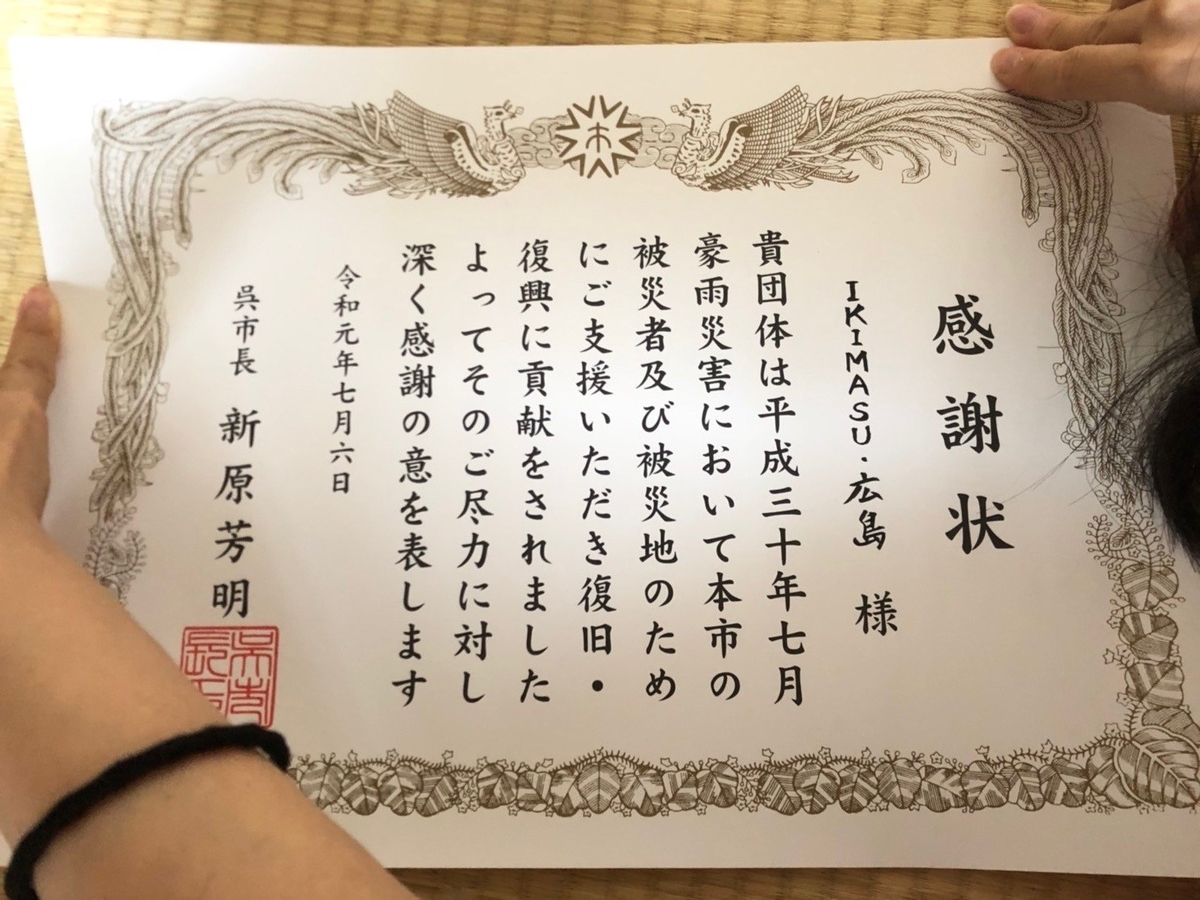 感謝状
IKIMASU・広島 様
貴団体は平成三十年七月
豪雨災害において本市の
被災者及び被災地のため
にご支援いただき復旧・
復興に貢献をされました
よってそのご尽力に対し
深く感謝の意を表します
令和元年七月六日
呉市長 新原芳明